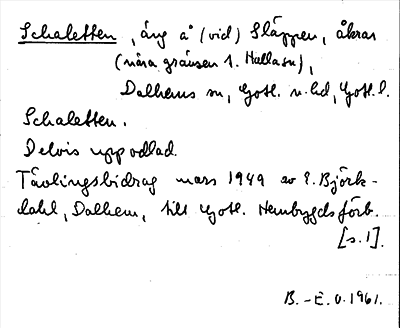 Schaletten, äng å (vid) Släppen, åkrar
(nära gränsen t. Hallasn),
Dalhems sn, Gotl. n. hd, Gotl. l.
Schaletten.
Delvis uppodlad.
Tävlingsbidrag mars 1949 av E. Björk-
dahl, Dalhem, till Gotl. Hembygdsförb.
[s. 1].
B.-E. O. 1961.